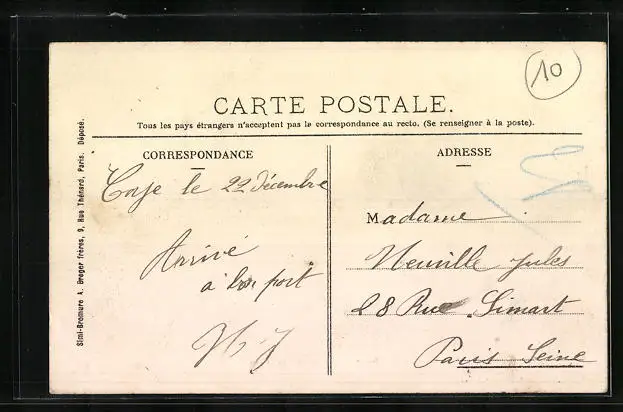 10
CARTE POSTALE.
Tous les pays étrangers n'acceptent pas le correspondance au recto. (Se renseigner à la poste).
CORRESPONDANCE
le 22 décembre
Arrivé
à bon port
ADRESSE
Madame
Neuville Jules
28 Rue Simart
Paris Seine
Simi-Bromure A. Breger frères, 9, Rue Thénard, Paris. Déposé.